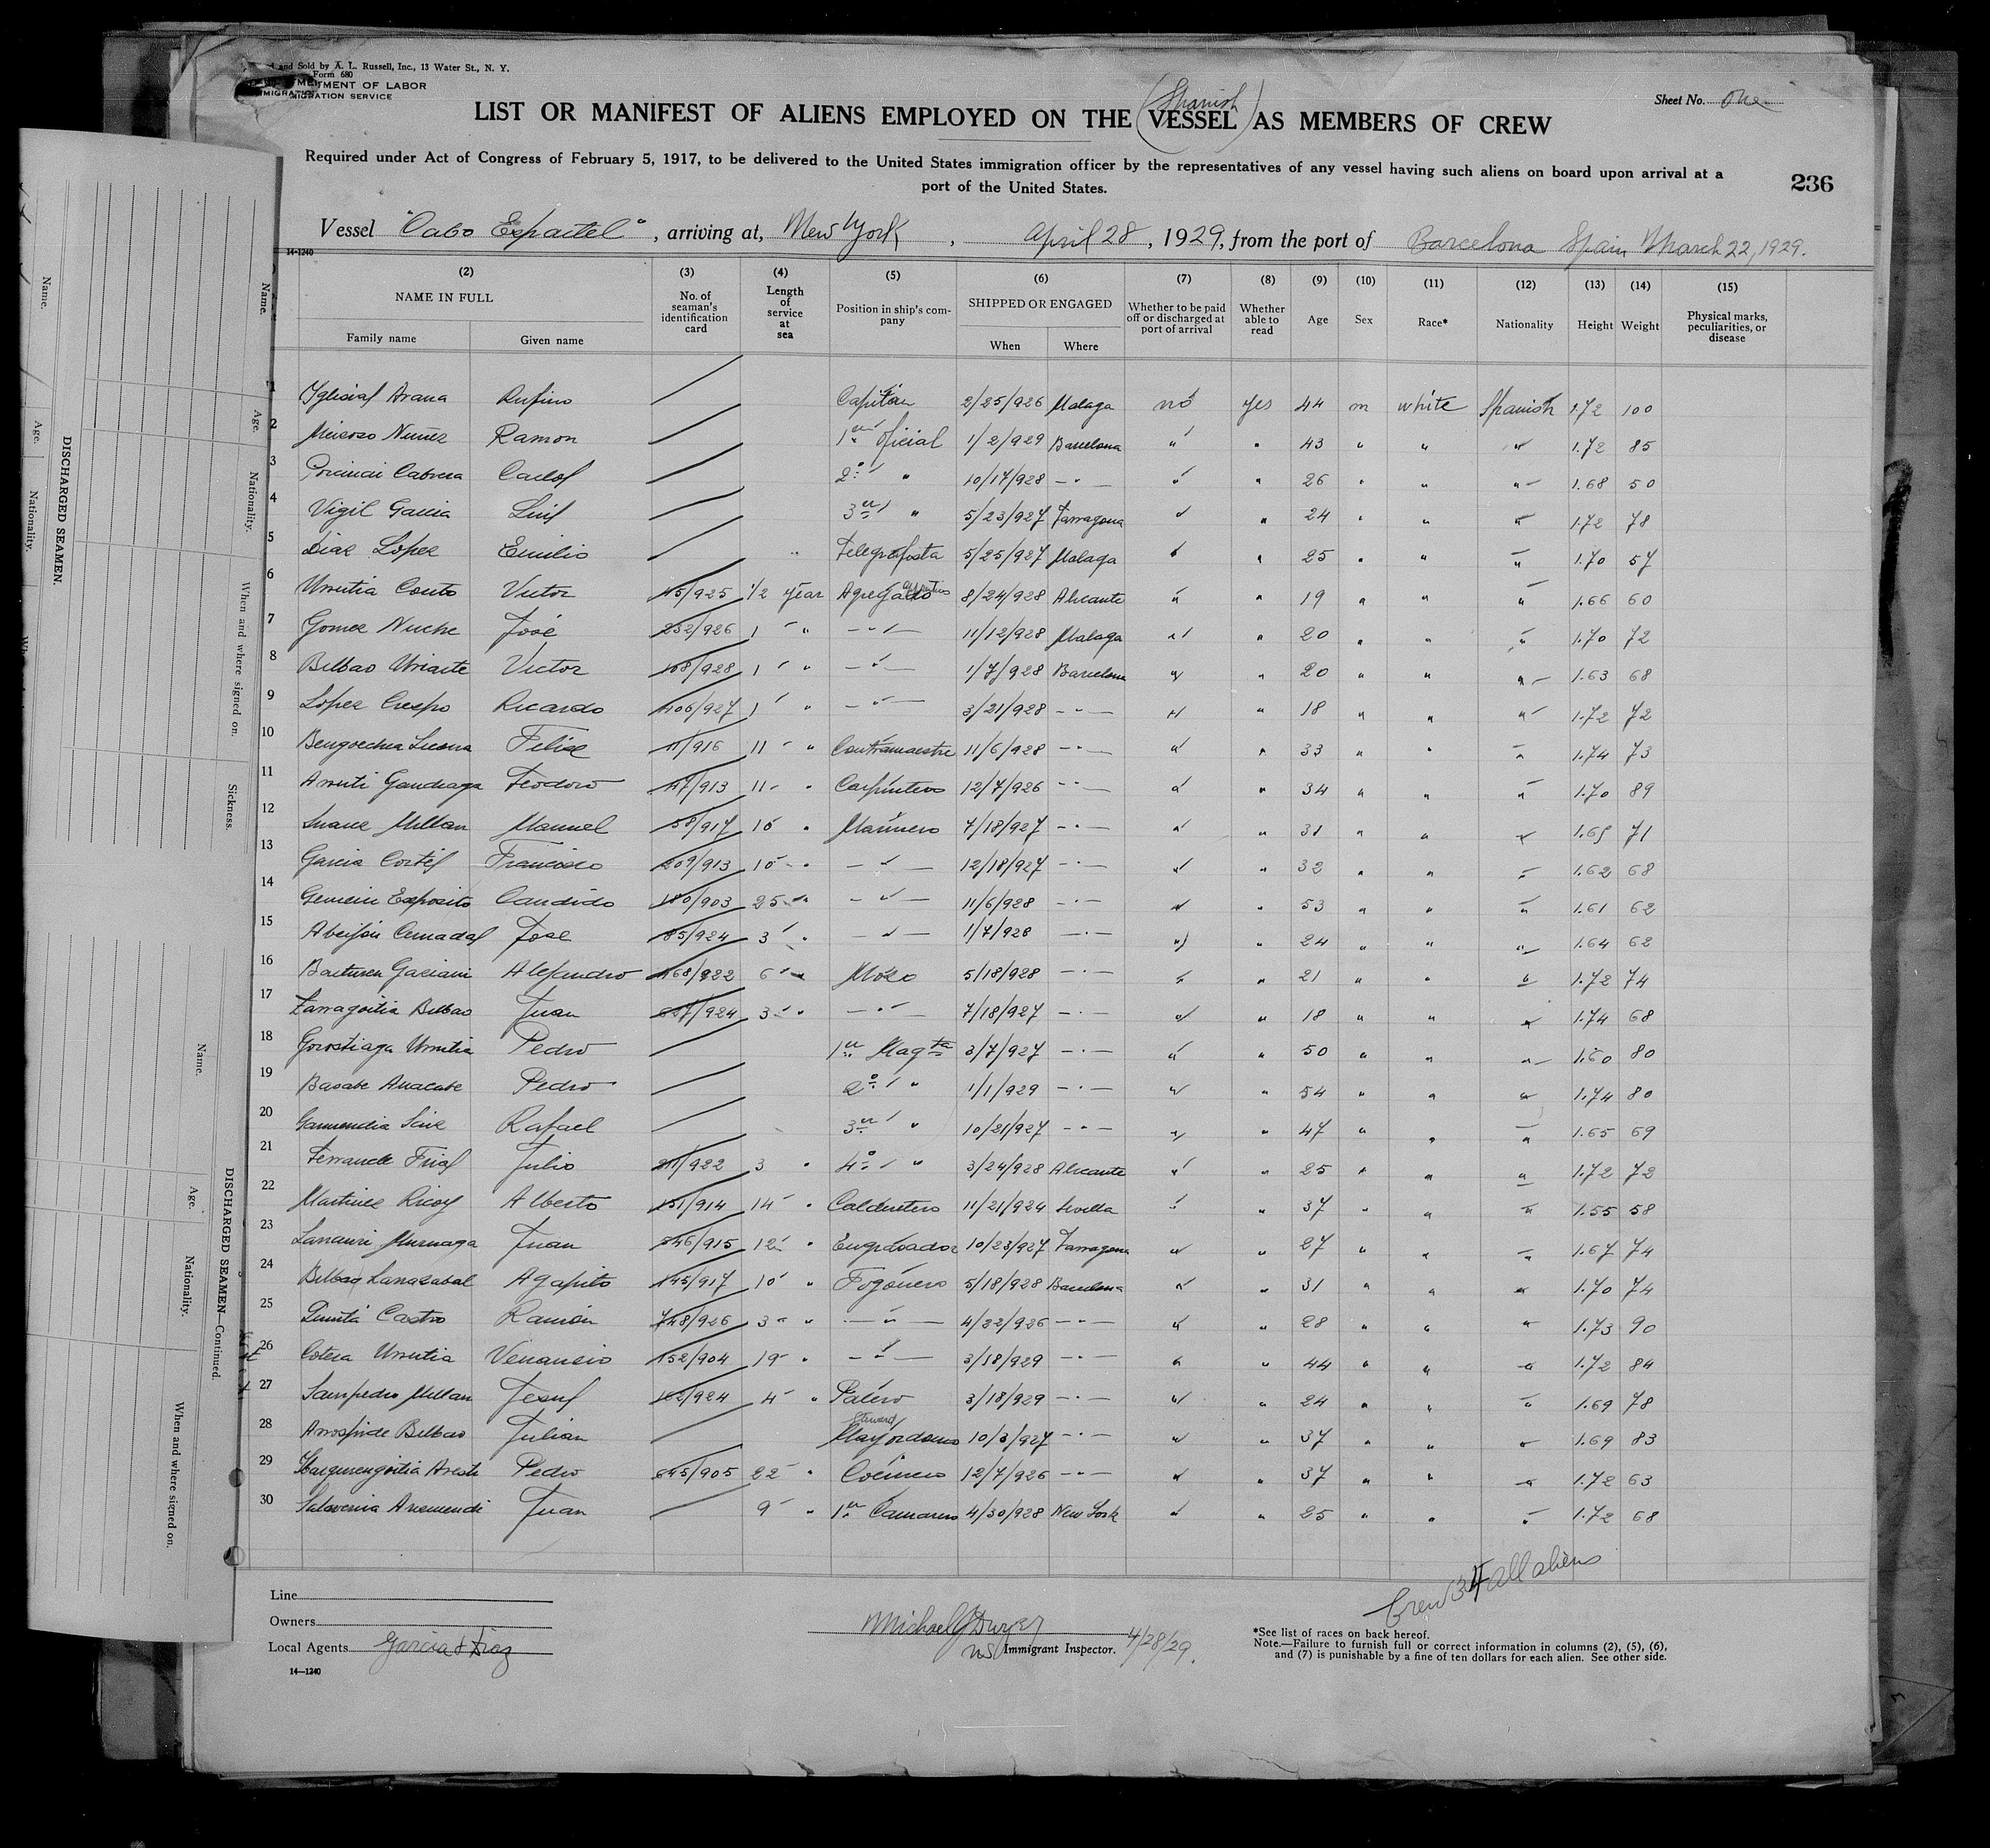 and Sold by A. L. Russell, Inc., 13 Water St., N. Y.
Form 680
DEPARTMENT OF LABOR
IMMIGRATION SERVICE
Sheet No. One
(Spanish)
LIST OR MANIFEST OF ALIENS EMPLOYED ON THE VESSEL AS MEMBERS OF CREW
Required under Act of Congress of February 5, 1917, to be delivered to the United States immigration officer by the representatives of any vessel having such aliens on board upon arrival at a
port of the United States.
236
Vessel "Cabo Espartel", arriving at, New York, April 28, 1929, from the port of Barcelona Spain March 22, 1929.
14-1240
(2) (3) (4) (5) (6) (7) (8) (9) (10) (11) (12) (13) (14) (15)
NAME IN FULL No. of seaman's identification card Length of service at sea Position in ship's company SHIPPED OR ENGAGED Whether to be paid off or discharged at port of arrival Whether able to read Age Sex Race* Nationality Height Weight Physical marks, peculiarities, or disease
Family name Given name When Where
1 Yglesias Arana Rufino Capitan 2/25/926 Malaga no yes 44 m white Spanish 1.72 100
2 Nuñez Ramon 1er oficial 1/2/929 Barcelona " " 43 " " " 1.72 85
3 Cabrera Carlos 2º " 10/17/928 — " — " " 26 " " " 1.68 50
4 Vigil Garcia Luis 3er " 5/23/927 Tarragona " " 24 " " " 1.72 78
5 Diaz Lopez Emilio Telegrafista 5/25/927 Malaga " " 25 " " " 1.70 57
6 Urrutia Couto Victor 45/925 1/2 year Agregado 8/24/928 Alicante " " 19 " " " 1.66 60
7 Gomez Nuche José 232/926 1 " — " — 11/12/928 Malaga " " 20 " " " 1.70 72
8 Bilbao Uriarte Victor 108/928 1 " — " — 1/7/928 Barcelona " " 20 " " " 1.63 68
9 Lopez Crespo Ricardo 406/927 1 " — " — 3/21/928 — " — " " 18 " " " 1.72 72
10 Bengoechea Felix 11/916 11 " Contramaestre 11/6/928 — " — " " 33 " " " 1.74 73
11 Arruti Gandiaga Teodoro 47/913 11 " Carpintero 12/7/926 — " — " " 34 " " " 1.70 89
12 Millan Manuel 58/917 10 " Marinero 7/18/927 — " — " " 31 " " " 1.65 71
13 Garcia Cortés Francisco 209/913 10 " — " — 12/18/927 — " — " " 32 " " " 1.62 68
14 Exposito Candido 180/903 25 " — " — 11/6/928 — " — " " 53 " " " 1.61 62
15 Jose 85/924 3 " — " — 1/7/928 — " — " " 24 " " " 1.64 62
16 Alejandro 468/922 6 " Mozo 5/18/928 — " — " " 21 " " " 1.72 74
17 Zarragoitia Bilbao Juan 627/924 3 " — " — 7/18/927 — " — " " 18 " " " 1.74 68
18 Gorostiaga Urrutia Pedro 1er Maqta 3/7/927 — " — " " 50 " " " 1.60 80
19 Basabe Anacabe Pedro 2º " 1/1/929 — " — " " 54 " " " 1.74 80
20 Garmendia Rafael 3er " 10/21/927 — " — " " 47 " " " 1.65 69
21 Julio 211/922 3 " 4º " 3/24/928 Alicante " " 25 " " " 1.72 72
22 Martinez Ricoy Alberto 151/914 14 " Calderetero 11/21/924 Sevilla " " 37 " " " 1.55 58
23 Juan 346/915 12 " Engrasador 10/23/927 Tarragona " " 27 " " " 1.67 74
24 Bilbao Larrazabal Agapito 145/917 10 " Fogonero 5/18/928 Barcelona " " 31 " " " 1.70 74
25 Castro Ramón 748/926 3 " — " — 4/22/926 — " — " " 28 " " " 1.73 90
26 Cotera Urrutia Venancio 152/904 19 " — " — 3/18/929 — " — " " 44 " " " 1.72 84
27 Sampedro Millan Jesus 162/924 4 " Palero 3/18/929 — " — " " 24 " " " 1.69 78
Steward
28 Arrospide Bilbao Julian Mayordomo 10/3/927 — " — " " 37 " " " 1.69 83
29 Pedro 645/905 22 " Cocinero 12/7/926 — " — " " 37 " " " 1.72 63
30 Juan 9 " 1er Camarero 4/30/928 New York " " 25 " " " 1.72 68
Crew 34 all aliens
Line
Owners
Local Agents Garcia & Diaz
14—1240
Michael J Dwyer
US Immigrant Inspector. 4/28/29.
*See list of races on back hereof.
Note.—Failure to furnish full or correct information in columns (2), (5), (6),
and (7) is punishable by a fine of ten dollars for each alien. See other side.
DISCHARGED SEAMEN.
Name. Age. Nationality. When and where signed on. Sickness.
DISCHARGED SEAMEN—Continued.
Name. Age. Nationality. When and where signed on.